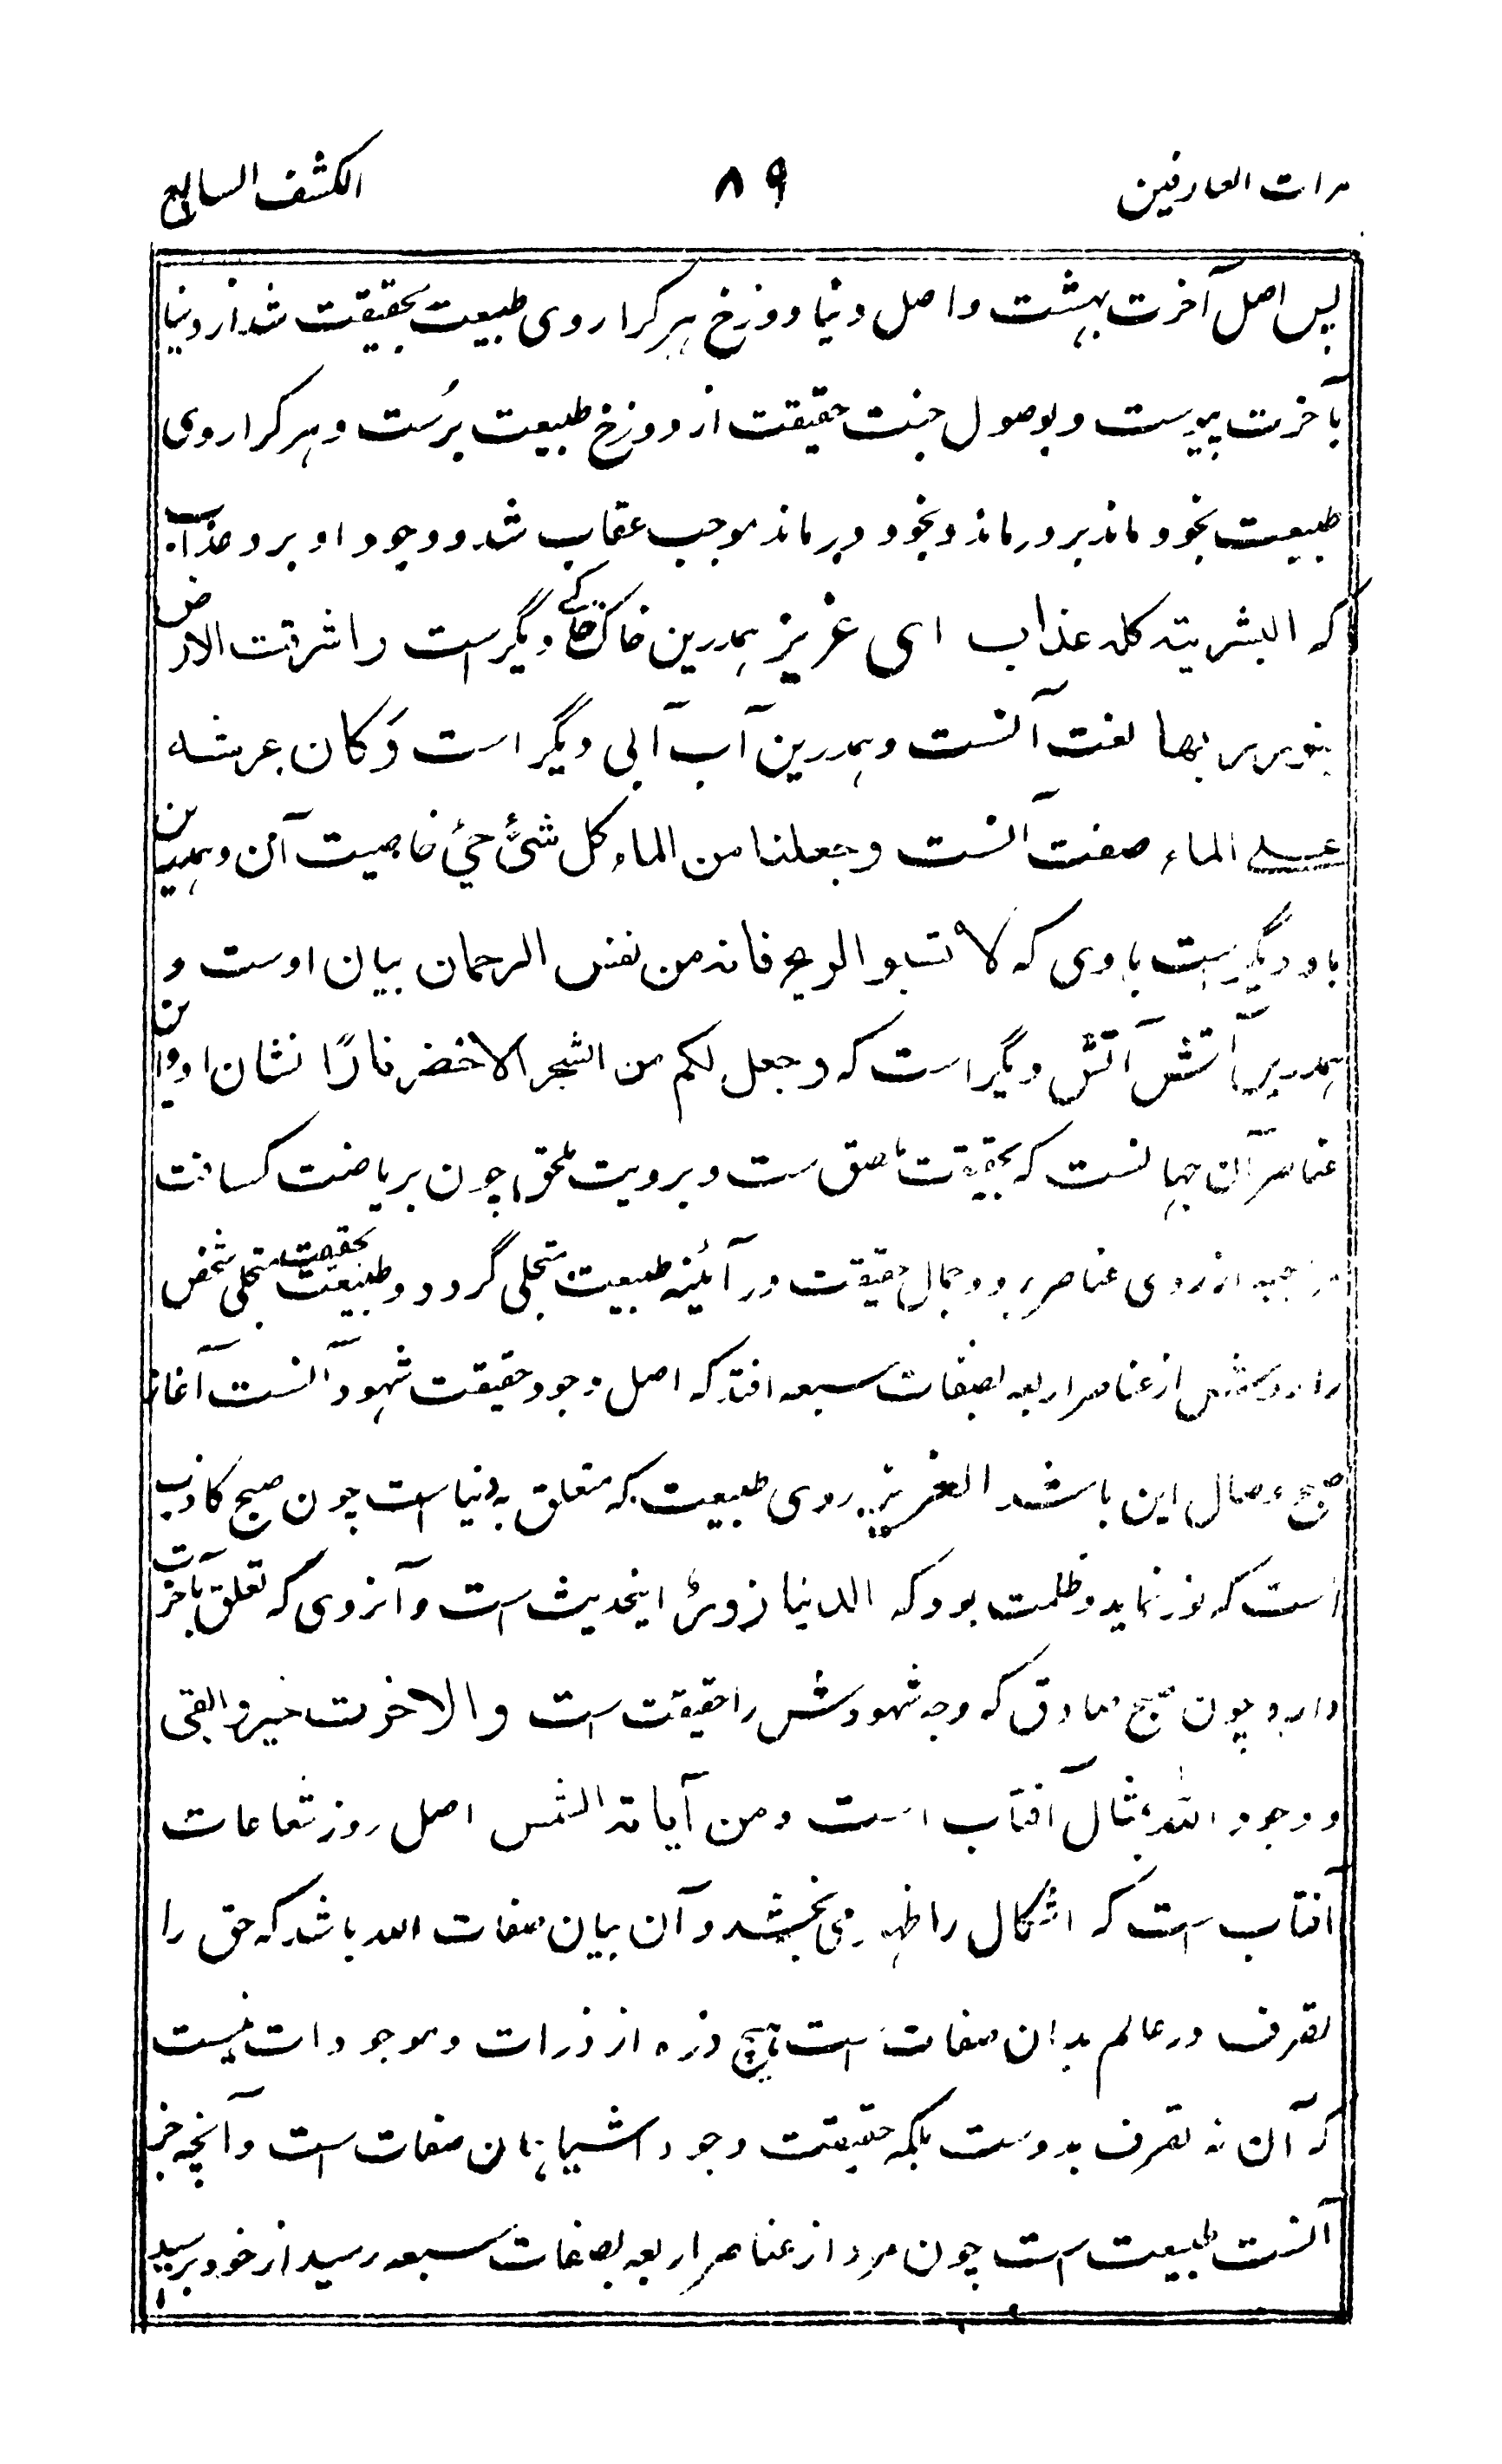 مرات العارفین ۸۹ الکشف السابع
پس اصل آخرت بہشت و اصل دنیا دوزخ ہر کرا روی طبیعت بحقیقت شد از دنیا
بآخرت پیوست و بوصول جنت حقیقت از دوزخ طبیعت برُست و ہر کرا روی
طبیعت بخود ماند بر در ماند و بخود در ماند موجب عقاب شد و وجود او برو عذاب
که البشریته کله عذاب ای عزیز ہمدرین خاک خاکے دیگرست و اشرقت الارض
بنور ربها لغت آنست و ہمدرین آب آبی دیگر است وَکان عرشه
علی الماء صفت آنست و جعلنا من الماء کل شئ حیٍ خاصیت آن و ہمدرین
باد دیگرست بادی که لا تسبو الریح فانه من نفس الرحمان بیان اوست و
ہمدرین آتش آتش دیگر است که وجعل لکم من الشجر الاخضر نارًا نشان او و این
عناصر آن جہانست که بحقیقت ملصق ست و برویت ملحق چون بریاضت کسافت
از روی عناصر برود و جمال حقیقت در آئینه طبیعت متجلی گردد و طبیعت بحقیقت متجلی شخص
را روش از عناصر اربعه بصفات سبعه افتد که اصل وجود حقیقت شہود آنست آغاز
صبح وصال این باشد العزیز روی طبیعت که متعلق به دنیا است چون صبح کاذب
است که نور نماید و ظلمت بود که الدنیا زورٌ اینحدیث است و آنروی که تعلق بآخرت
دارد چون صبح صادق که وجه شهودش را حقیقت است والاخرت خیر و ابقی
و وجود اللّٰه بمثال آفتاب است و من آیاته الشمس اصل روز شعاعات
آفتاب است که اشکال را ظہور می بخشد و آن بیان صفات الله باشد که حق را
تصرف در عالم بدان صفات است ہیچ ذره از ذرات و موجودات نیست
که آن نه تصرف بدوست بلکه حقیقت وجود اشیا ہمان صفات است و آنچه جز
آنست طبیعت است چون مرد از عناصر اربعه بصفات سبعه رسید از خود برسید